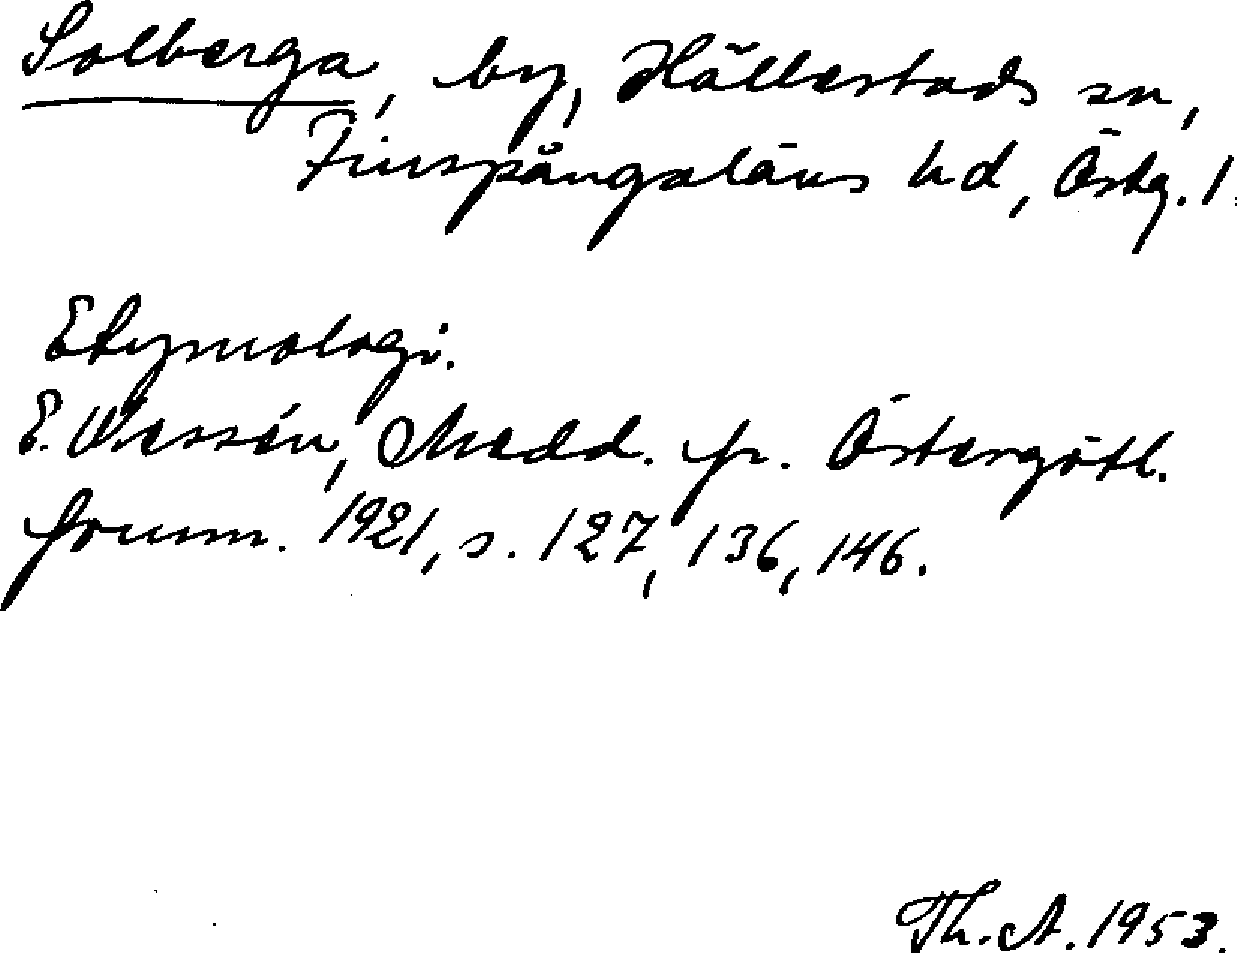 Solberga, by, Hällestads sn,
Finspångaläns hd, Östg. l.
Etymologi.
E. Wessén, Medd. fr. Östergötl.
fornm. 1921, s. 127, 136, 146.
Th. A. 1953.